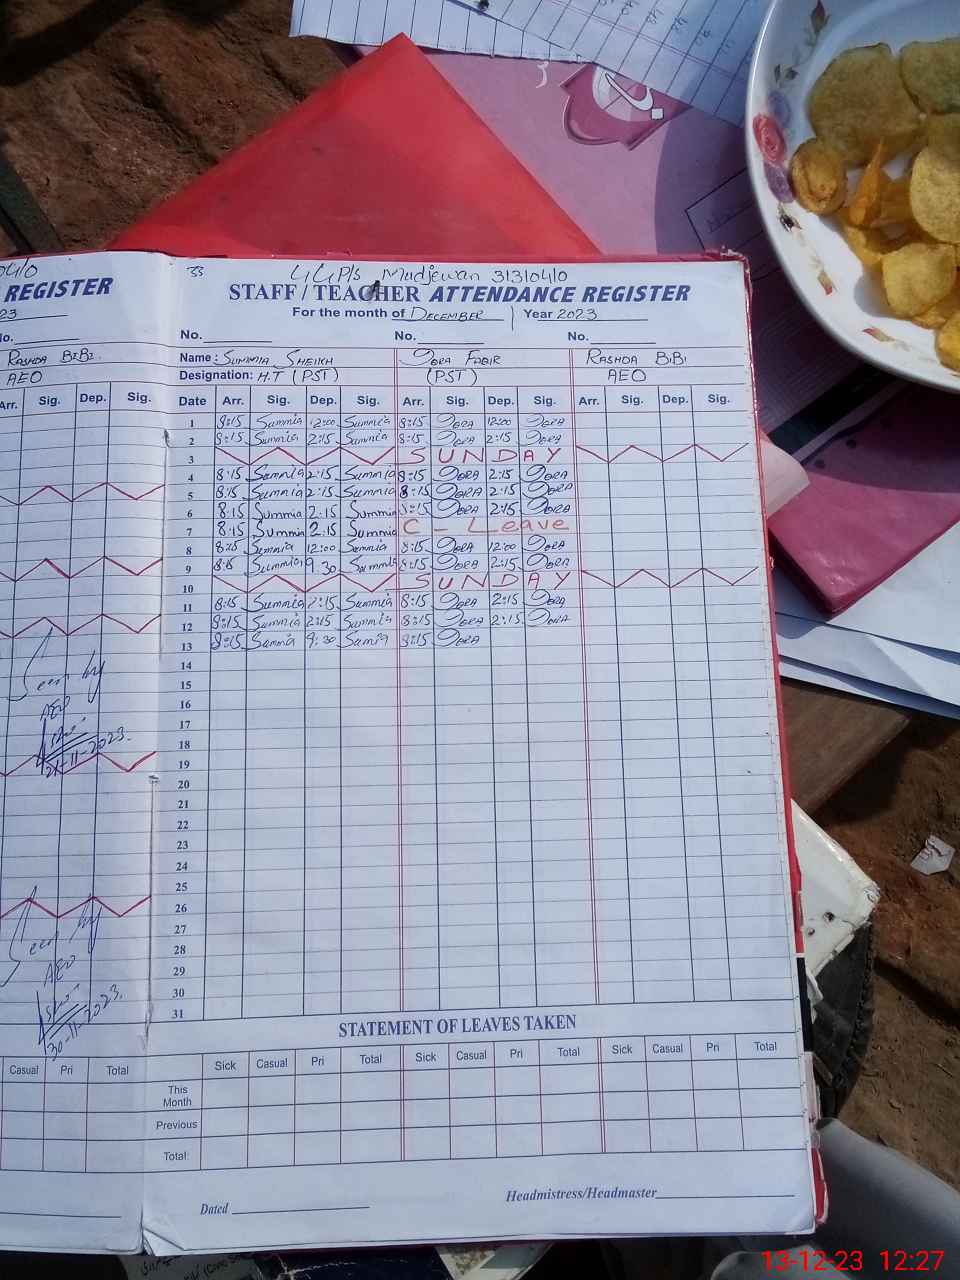 33 GGP/s Mudjewan 31310410
STAFF / TEACHER ATTENDANCE REGISTER
For the month of DECEMBER Year 2023
No. No. No.
Name : SUMMIA SHEIKH RASHDA BIBI
Designation: H.T (PST) (PST) AEO
Date Arr. Sig. Dep. Sig. Arr. Sig. Dep. Sig. Arr. Sig. Dep. Sig.
1 8:15 Summia 12:00 Summia 8:15 12:00
2 8:15 Summia 2:15 Summia 8:15 2:15
3 SUNDAY
4 8:15 Summia 2:15 Summia 8:15 2:15
5 8:15 Summia 2:15 Summia 8:15 2:15
6 8:15 Summia 2:15 Summia 8:15 2:15
7 8:15 Summia 2:15 Summia C - Leave
8 8:15 Summia 12:00 Summia 8:15 12:00
9 Summia 9:30 Summia 8:15 2:15
10 SUNDAY
11 8:15 Summia 2:15 Summia 8:15 2:15
12 8:15 Summia 2:15 Summia 8:15 2:15
13 8:15 Summia 9:30 Samia 8:15
14
15
16
17
18
19
20
21
22
23
24
25
26
27
28
29
30
31
STATEMENT OF LEAVES TAKEN
Sick Casual Pri Total Sick Casual Pri Total Sick Casual Pri Total
This Month
Previous
Total:
Dated Headmistress/Headmaster
REGISTER
23
No.
RASHDA BIBI.
AEO
Arr. Sig. Dep. Sig.
Seen by
AEO
21-11-2023.
Seen by
AEO
30-11-2023.
Casual Pri Total
13-12-23 12:27